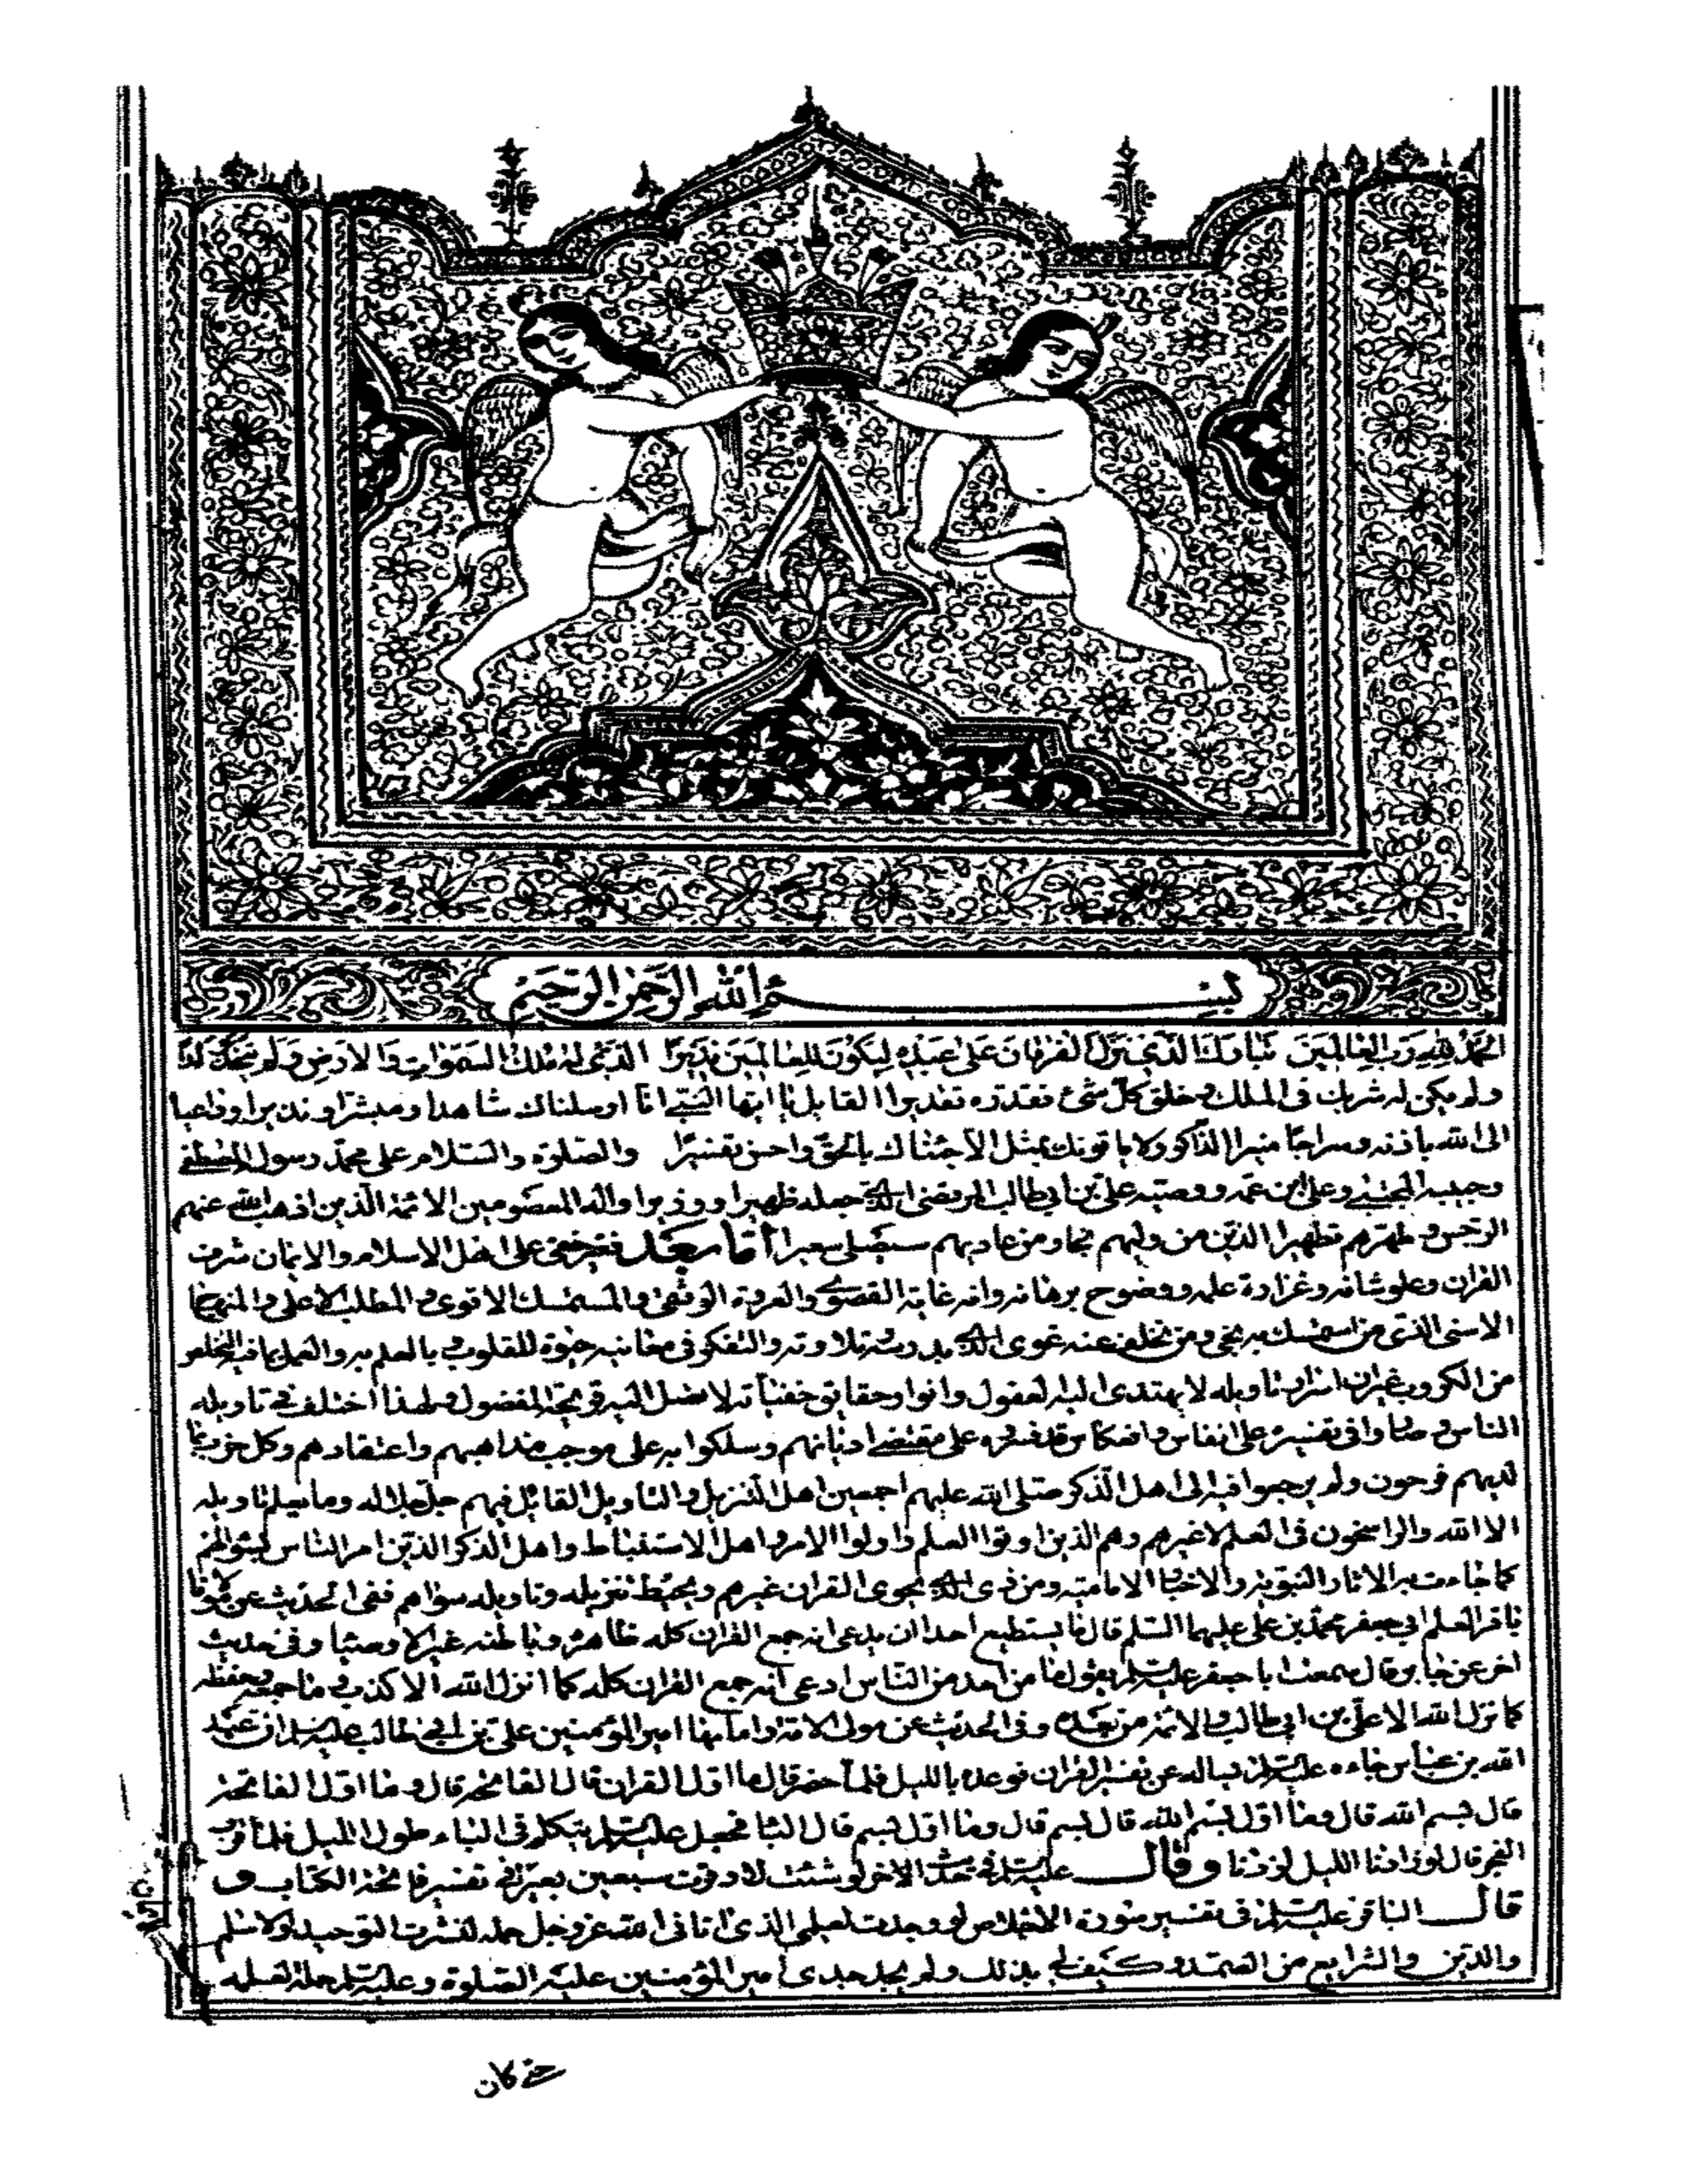 بسم الله الرحمن الرحيم
الحمد لله رب العالمين تبارك الذي نزل الفرقان على عبده ليكون للعالمين نذيرا الذي له ملك السموات والارض ولم يتخذ ولدا
ولم يكن له شريك في الملك وخلق كل شئ فقدره تقديرا القايل يا ايها النبي انا ارسلناك شاهدا ومبشرا ونذيرا وداعيا
الى الله باذنه وسراجا منيرا الذاكر ولا ياتونك بمثل الا جئناك بالحق واحسن تفسيرا والصلوة والسلام على محمد رسول المصطفى
وحبيبه المجتبى وعلى ابن عمه ووصيه علي بن ابي طالب المرتضى الذي جعله ظهيرا ووزيرا واله المعصومين الائمة الذين اذهب الله عنهم
الرجس وطهرهم تطهيرا الذين من وليهم نجا ومن عاديهم سيصلى سعيرا اما بعد فغير خفي على اهل الاسلام والايمان شرف
القران وعلو شانه وغزارة علمه ووضوح برهانه وانه غاية القصوى والعروة الوثقى والمستمسك الاقوى والمطلب الاعلى والمنهاج
الاسنى الذي من استمسك به نجى ومن تخلف عنه غوى الذي بدرسه وتلاوته والتفكر في معانيه حيوة للقلوب وبالعلم به والعمل بما فيه التخلص
من الكروب غير ان اسرار تاويله لا يهتدى اليه العقول وانوار حقايق خفياته لا تصل اليه قريحة المفضول ولهذا اختلف في تاويله
الناس وصاروا في تفسيره على انفاس وانعكاس قد فسروه على مقتضى اديانهم وسلكوا به على موجب مذاهبهم واعتقادهم وكل حزب بما
لديهم فرحون ولم يرجعوا فيه الى اهل الذكر صلى الله عليهم اجمعين اهل التنزيل والتاويل القائل فيهم جل جلاله وما يعلم تاويله
الا الله والراسخون في العلم لا غيرهم وهم الذين اوتوا العلم واولوا الامر واهل الاستنباط واهل الذكر الذين امر الناس بسؤالهم
كما جاءت به الاثار النبوية والاخبار الامامية ومن ذى الذي يحوى القران غيرهم ويحيط بتنزيله وتاويله سواهم ففي الحديث عن مولانا
باقر العلم ابي جعفر محمد بن علي عليهما السلم قال ما يستطيع احد ان يدعى انه جمع القران كله ظاهره وباطنه غير الاوصيا وفي حديث
اخر عن جابر قال سمعت ابا جعفر عليه السلم يقول ما من احد من الناس ادعى انه جمع القران كله كما انزل الله الا كذب وما جمعه وحفظه
كما نزل الله الا علي بن ابي طالب والائمة من بعده وفي الحديث عن مولى الامة وامامها امير المؤمنين علي بن ابي طالب عليه السلم ان عبد
الله بن عباس جاءه عليه السلم يساله عن تفسير القران فوعده بالليل فلما حضر قال ما اول القران قال الفاتحة قال وما اول الفاتحة
قال بسم الله قال وما اول بسم الله قال بسم قال وما اول بسم قال البا فجعل عليه السلم يتكلم في الباء طول الليل فلما قرب
الفجر قال لو زادنا الليل لزدنا وقال عليه السلم في الاخر لو شئت لاوقرت سبعين بعيرا في تفسير فاتحة الكتاب و
قال الباقر عليه السلم في تفسير سورة الاخلاص لو وجدت لعلمي الذي اتاني الله عز وجل حملة لنشرت التوحيد والاسلم
والدين والشرايع من الصمد وكيف لي بذلك ولم يجد جدى امير المؤمنين عليه الصلوة وعليه السلم حملة لعلمه
حتى كان